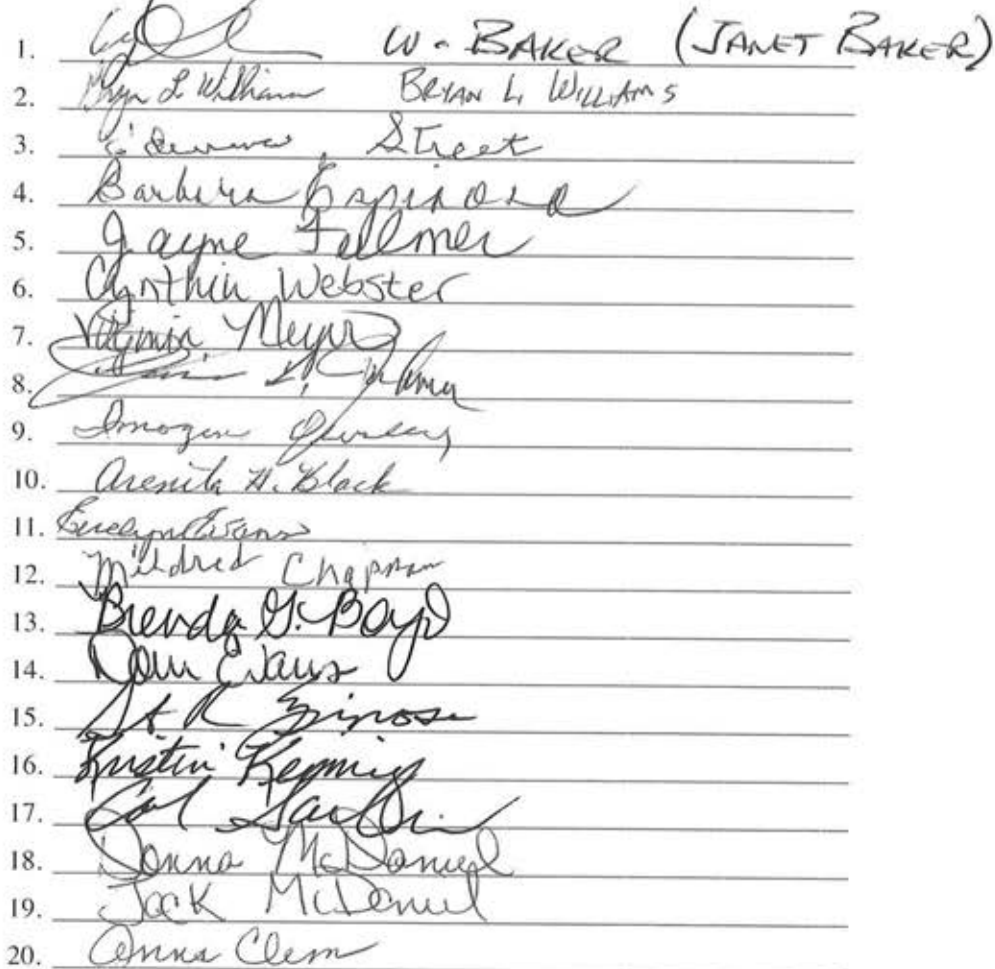 1. W. BAKER (JANET BAKER)
2. Bryan L Williams BRYAN L. WILLIAMS
3. Street
4. Barbara Espinosa
5. Jayne Fellmer
6. Cynthia Webster
7. Meyer
8. L.
9. Imogene
10. Arenita H. Black
11. Evelyn Evans
12. Mildred Chapman
13. Brenda G. Boyd
14. Evans
15. R Espinosa
16. Kristin
17.
18. Donna McDaniel
19. Jack McDaniel
20. Anna Clem